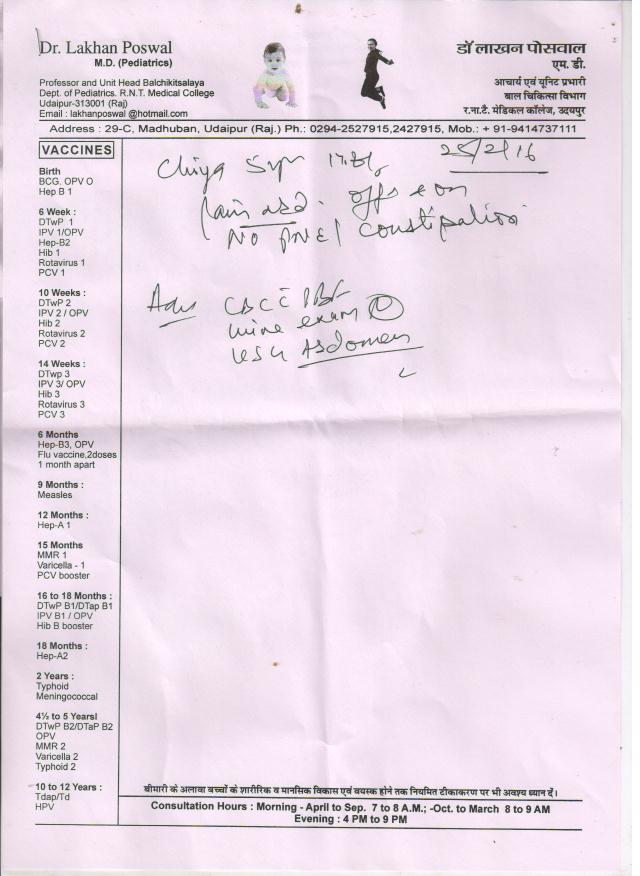 Dr. Lakhan Poswal
M.D. (Pediatrics)
Professor and Unit Head Balchikitsalaya
Dept. of Pediatrics. R.N.T. Medical College
Udaipur-313001 (Raj)
Email : lakhanposwal @hotmail.com
डॉ लाखन पोसवाल
एम. डी.
आचार्य एवं यूनिट प्रभारी
बाल चिकित्सा विभाग
र.ना.टै. मेडिकल कॉलेज, उदयपुर
Address : 29-C, Madhuban, Udaipur (Raj.) Ph.: 0294-2527915,2427915, Mob.: + 91-9414737111
VACCINES
Birth
BCG. OPV O
Hep B 1
6 Week :
DTwP 1
IPV 1/OPV
Hep-B2
Hib 1
Rotavirus 1
PCV 1
10 Weeks :
DTwP 2
IPV 2 / OPV
Hib 2
Rotavirus 2
PCV 2
14 Weeks :
DTwp 3
IPV 3/ OPV
Hib 3
Rotavirus 3
PCV 3
6 Months
Hep-B3, OPV
Flu vaccine,2doses
1 month apart
9 Months :
Measles
12 Months :
Hep-A 1
15 Months
MMR 1
Varicella - 1
PCV booster
16 to 18 Months :
DTwP B1/DTap B1
IPV B1 / OPV
Hib B booster
18 Months :
Hep-A2
2 Years :
Typhoid
Meningococcal
4½ to 5 Yearsl
DTwP B2/DTaP B2
OPV
MMR 2
Varicella 2
Typhoid 2
10 to 12 Years :
Tdap/Td
HPV
Chiya 5yr
Pain abd. off & on
No constipation
Adv CBC
urine exam
USG Abdomen
बीमारी के अलावा बच्चों के शारीरिक व मानसिक विकास एवं वयस्क होने तक नियमित टीकाकरण पर भी अवश्य ध्यान दें।
Consultation Hours : Morning - April to Sep. 7 to 8 A.M.; -Oct. to March 8 to 9 AM
Evening : 4 PM to 9 PM